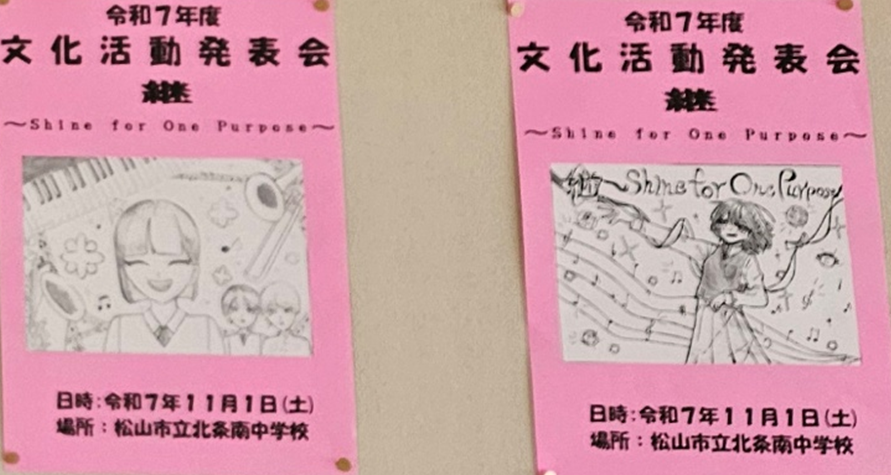 令和7年度
文化活動発表会
継
～Shine for One Purpose～
日時:令和7年11月1日(土)
場所:松山市立北条南中学校
令和7年度
文化活動発表会
継
～Shine for One Purpose～
継～Shine for One Purpose
日時:令和7年11月1日(土)
場所:松山市立北条南中学校